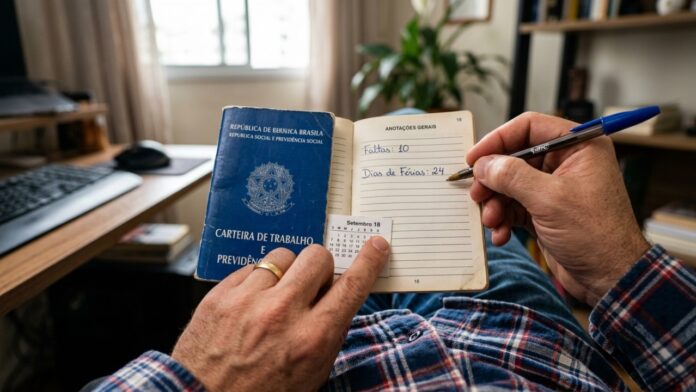 REPÚBLICA DE BERNICA BRASILA
REPÚBLICA SOCIAL E PREVIDÊNCIA SOCIAL
CARTEIRA DE TRABALHO
E
ANOTAÇÕES GERAIS
18
Faltas: 10
Dias de Férias: 24
Setembro 18
18